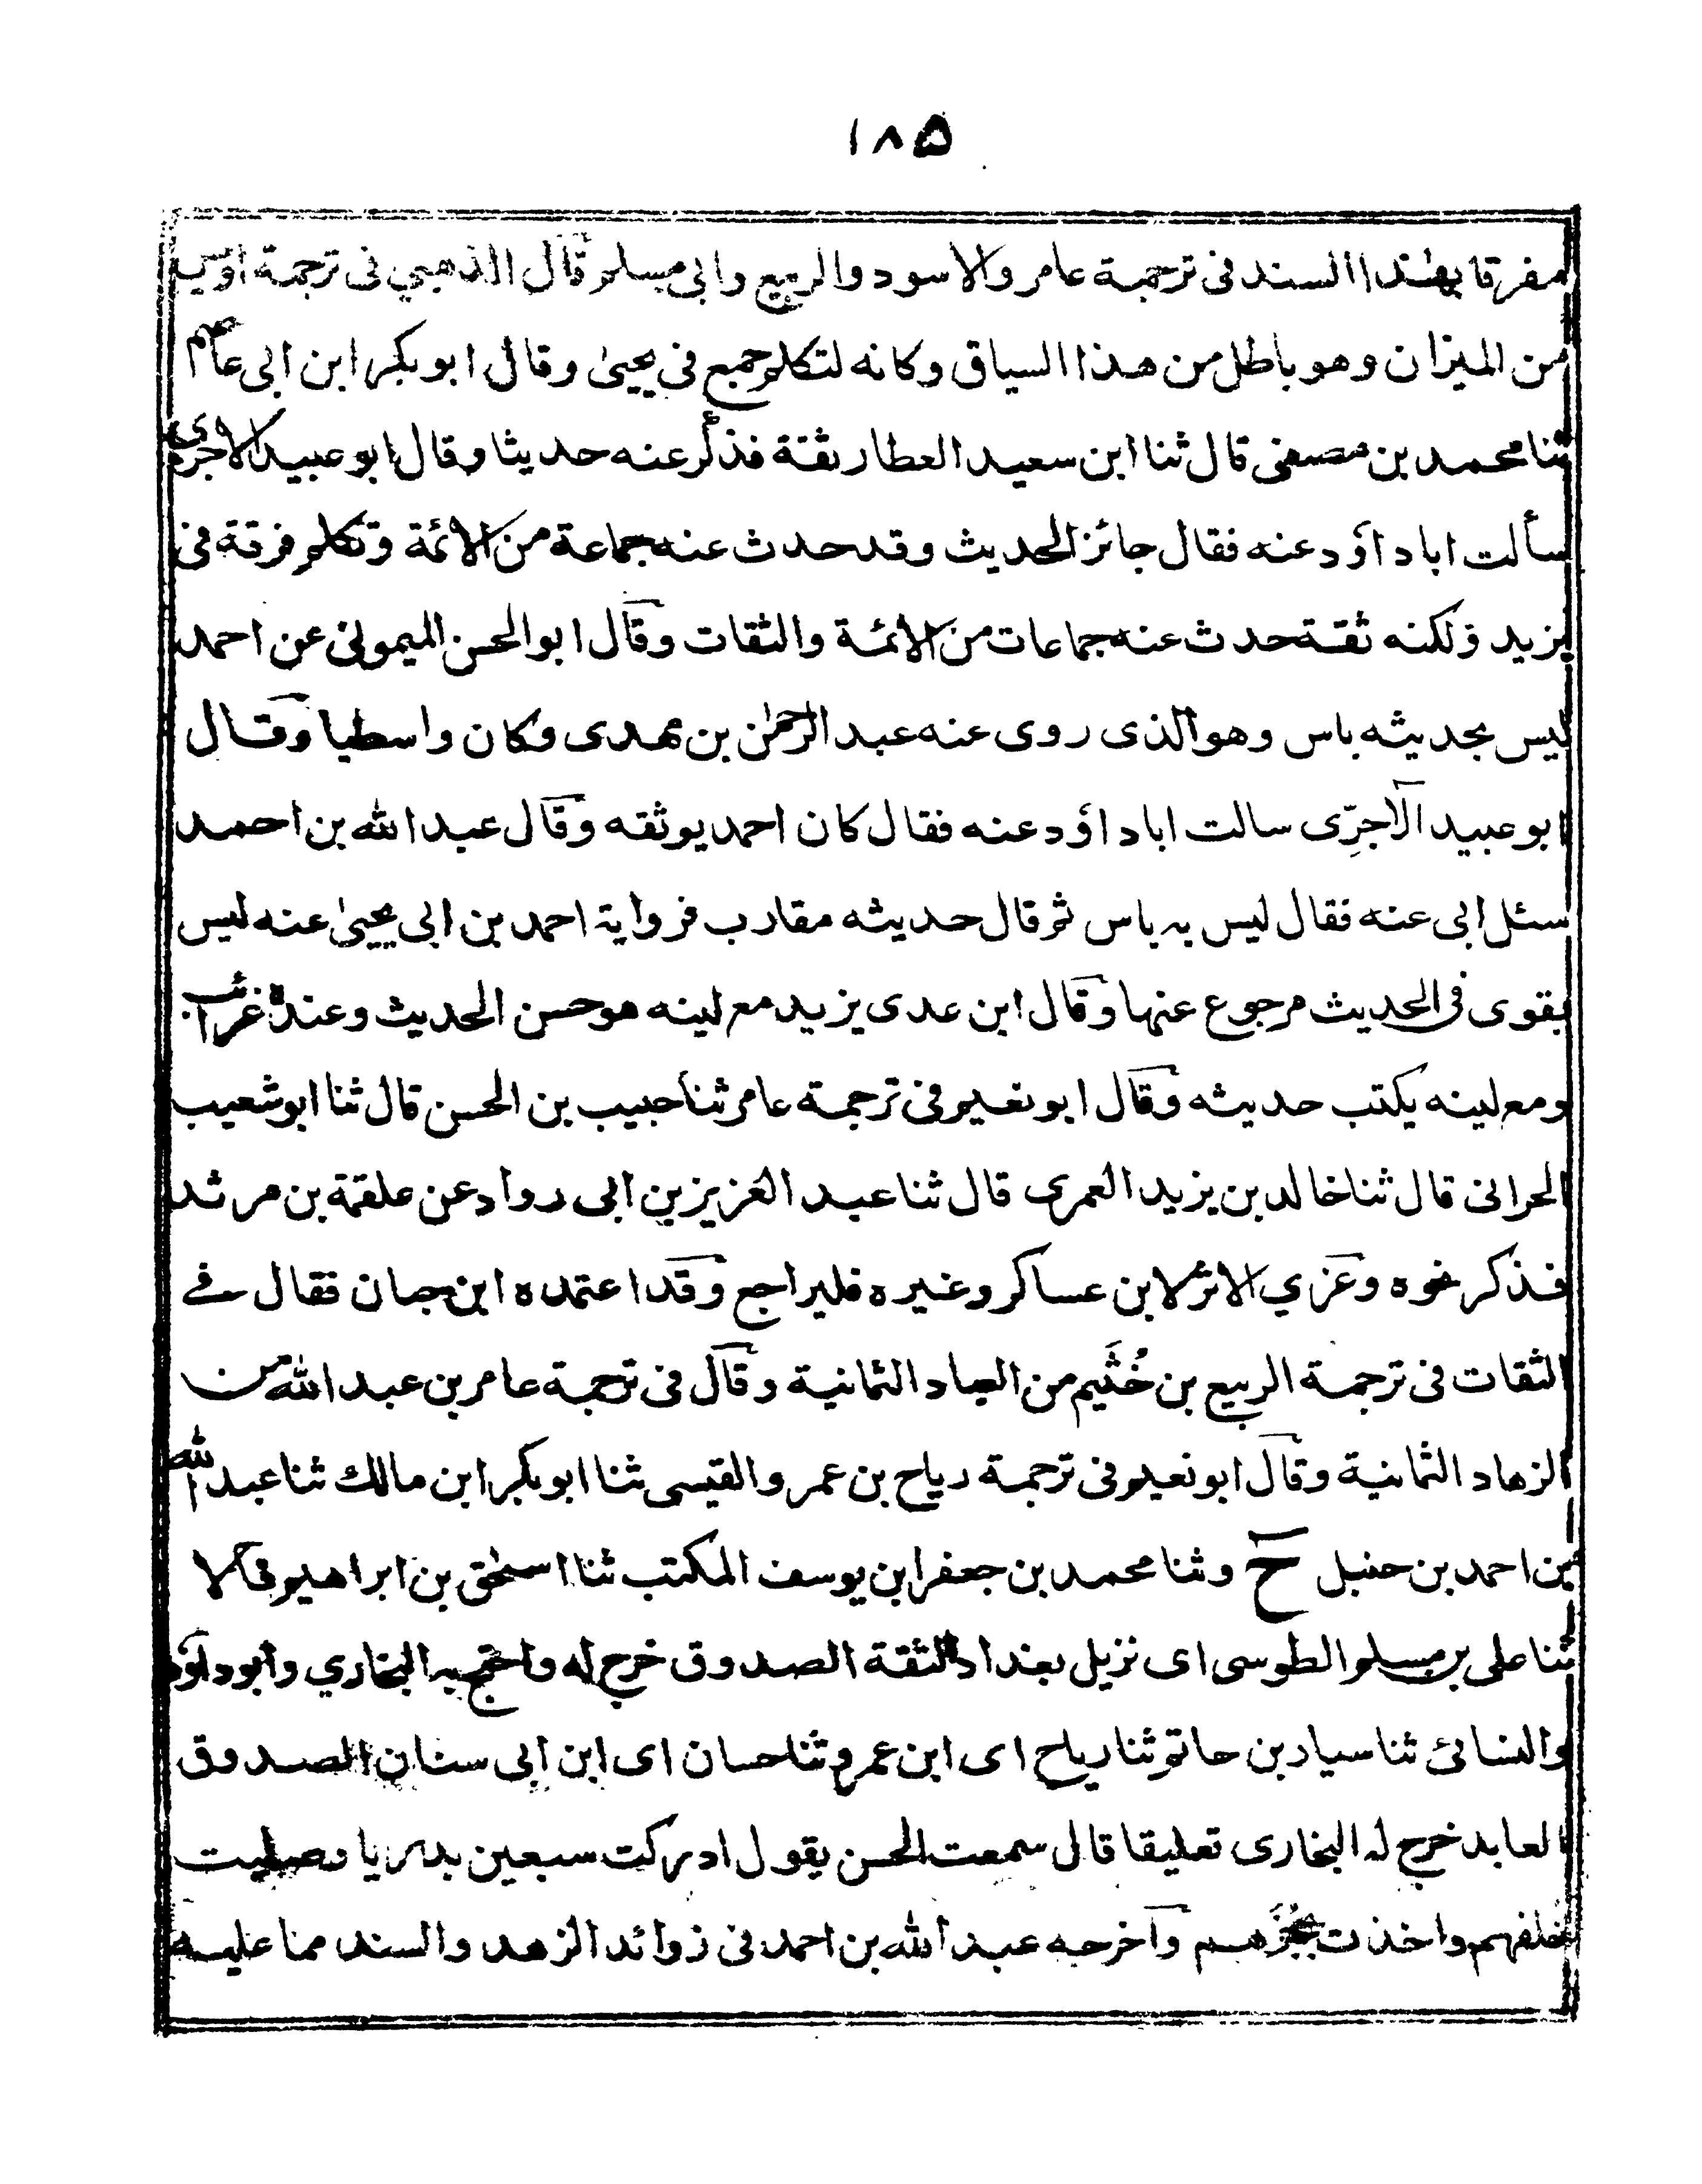 ١٨٥
مفرقا بهذا السند فى ترجمة عامر والاسود والربيع وابى مسلم وقال الذهبي فى ترجمة اويس
من الميزان وهو باطل من هذا السياق وكانه لتكلم جمع فى يحيىٰ وقال ابو بكر ابن ابى عاصم
ثنا محمد بن مصفى قال ثنا ابن سعيد العطار ثقة فذكر عنه حديثا وقال ابو عبيد الاجرى
سألت اباداؤد عنه فقال جائز الحديث وقد حدث عنه جماعة من الائمة وتكلم فرقة فى
يزيد ولكنه ثقة حدث عنه جماعات من الائمة والثقات وقال ابو الحسن الميمونى عن احمد
ليس بحديثه باس وهو الذى روى عنه عبد الرحمٰن بن مهدى وكان واسطيا وقال
ابو عبيد الآجرّى سالت اباداؤد عنه فقال كان احمد يوثقه وقال عبد الله بن احمد
سئل ابى عنه فقال ليس به باس ثم قال حديثه مقارب فرواية احمد بن ابى يحيىٰ عنه ليس
بقوى فى الحديث مرجوع عنها وقال ابن عدى يزيد مع لينه هو حسن الحديث وعنده غرائب
ومع لينه يكتب حديثه وقال ابو نعيم فى ترجمة عامر ثنا حبيب بن الحسن قال ثنا ابو شعيب
الحرانى قال ثنا خالد بن يزيد العمرى قال ثنا عبد العزيز بن ابى رواد عن علقمة بن مرثد
فذكر نحوه وعزي الاثر لابن عساكر وغيره فليراجع وقد اعتمده ابن حبان فقال فے
الثقات فى ترجمة الربيع بن خُثَيم من العباد الثمانية وقال فى ترجمة عامر بن عبد الله من
الزهاد الثمانية وقال ابو نعيم فى ترجمة رياح بن عمرو القيسى ثنا ابو بكر ابن مالك ثنا عبد الله
بن احمد بن حنبل ح وثنا محمد بن جعفر ابن يوسف المكتب ثنا اسحٰق بن ابراهيم قالا
ثنا على بن مسلم الطوسى اى نزيل بغداد الثقة الصدوق خرج له واحتج به البخاري وابو داؤد
والنسائئ ثنا سيار بن حاتم ثنا رياح اى ابن عمرو ثنا حسان اى ابن ابى سنان الصدوق
العابد خرج له البخارى تعليقا قال سمعت الحسن يقول ادركت سبعين بدريا وصليت
خلفهم واخذت بحُجَزهم وآخرجه عبد الله بن احمد فى زوائد الزهد والسند مما عليه